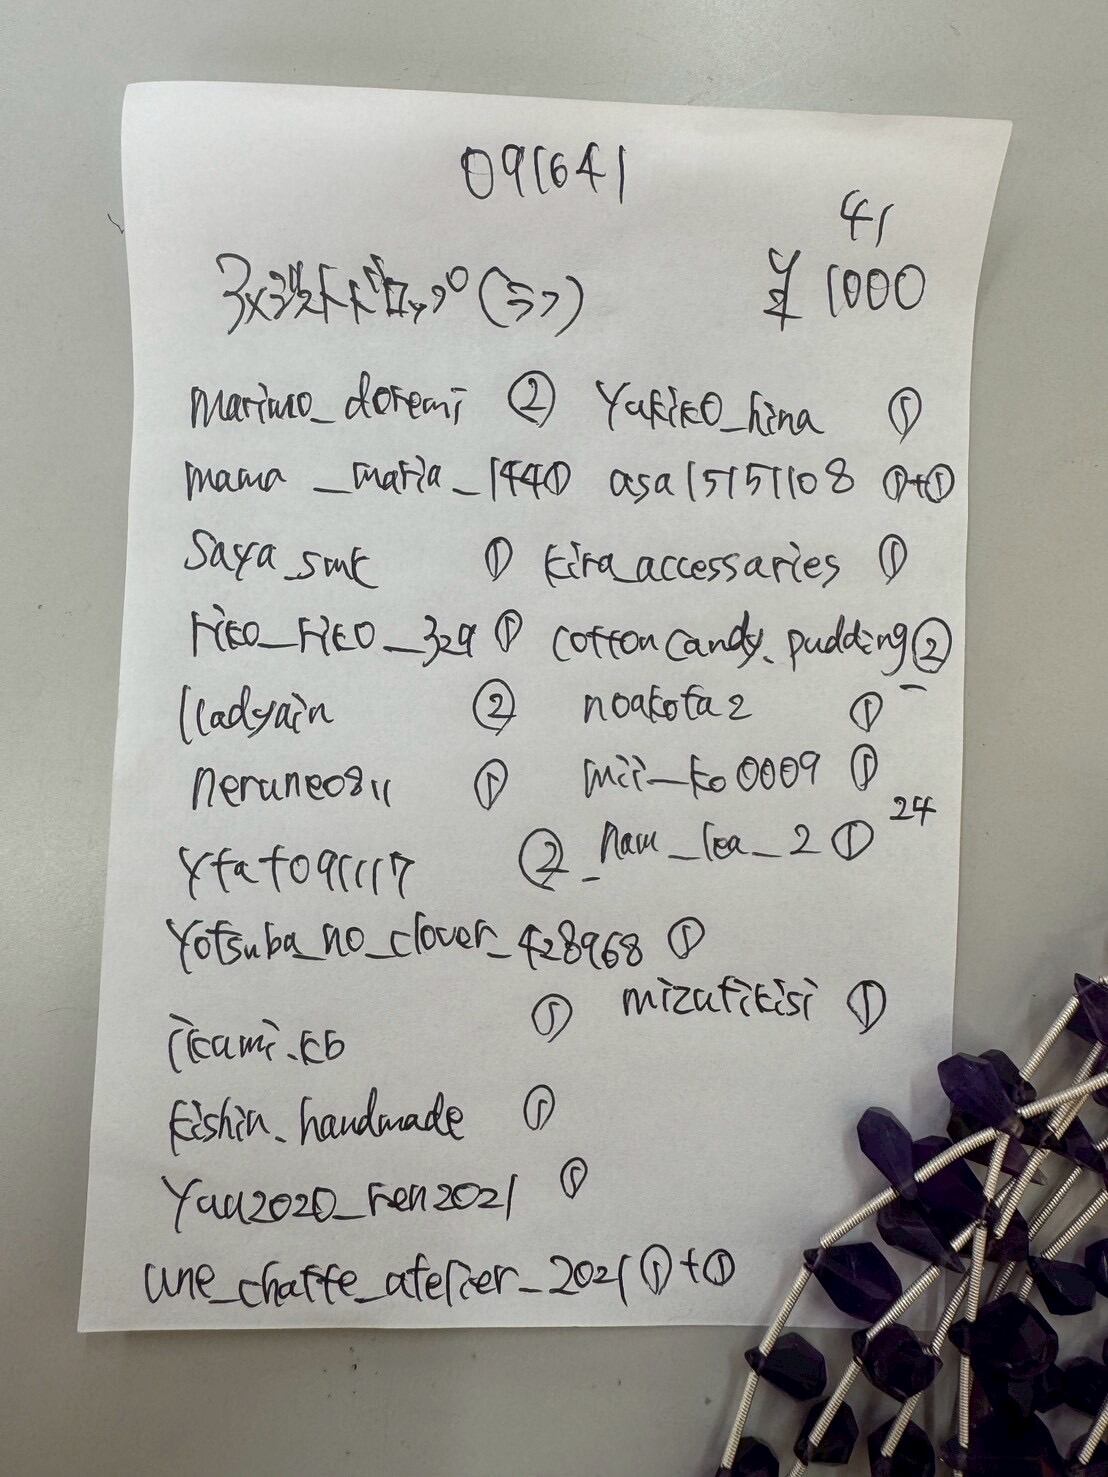 091641
41
ドロップ(ラフ) ¥1000
marimo_doremi ② Yukiko_hina ①
mama_maria_144 ① asa15151108 ①+①
saya_smk ① kira_accessaries ①
riko_riko_329 ① cottoncandy.pudding ②
lladyain ② noakota2 ①
neruneo811 ① mii_ko0009 ①
24
ytat091117 ② _nau_lea_2 ①
yotsuba_no_clover_428968 ①
ikami.kb ① mizufikisi ①
kishin.handmade ①
Yuu2020_ren2021 ①
une_chatte_atelier_2021 ①+①